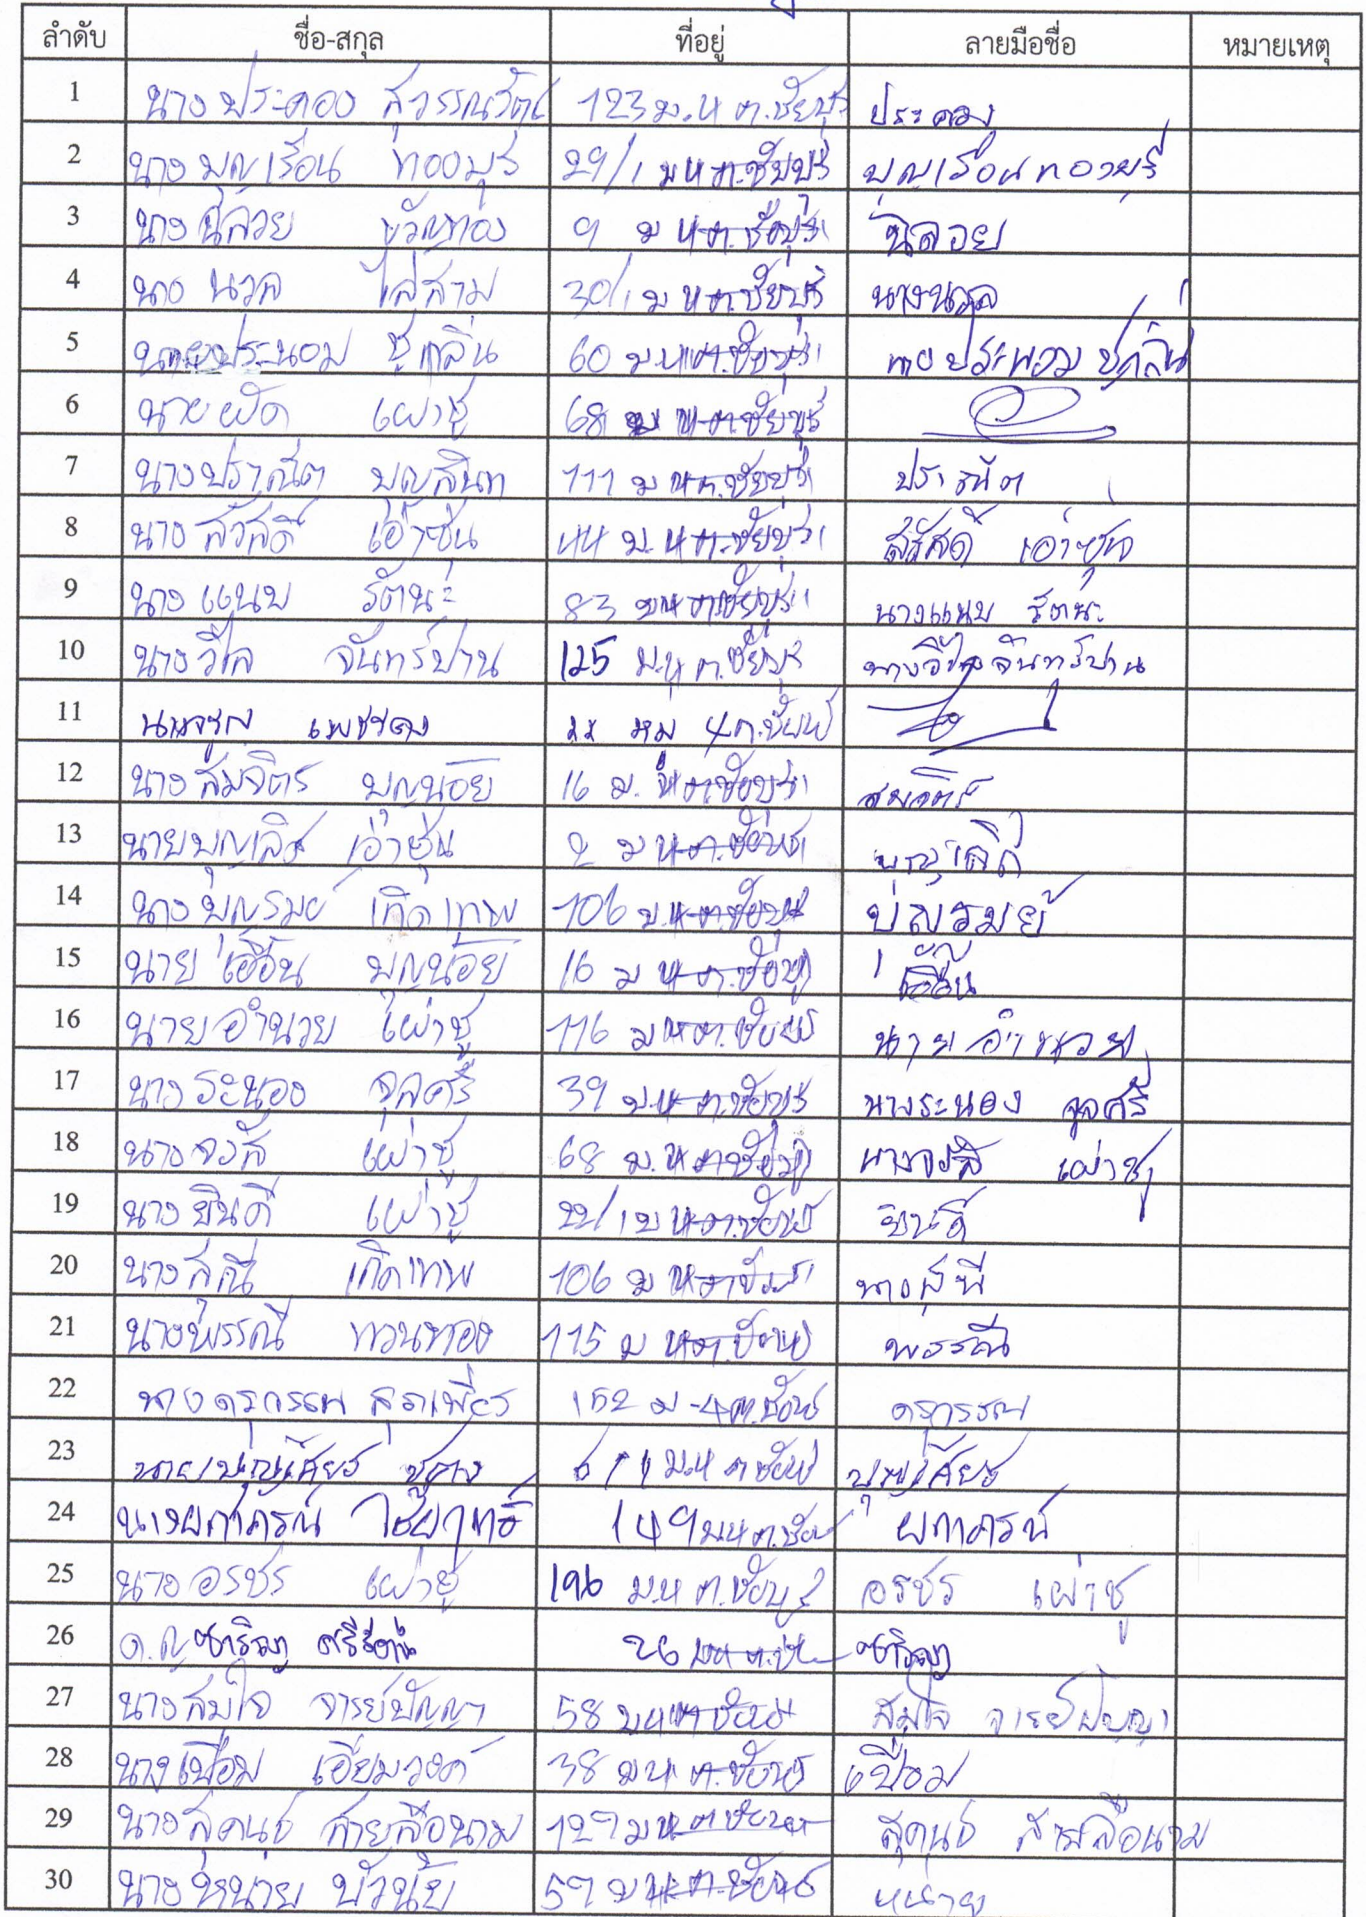 ลำดับ ชื่อ-สกุล ที่อยู่ ลายมือชื่อ หมายเหตุ
1 นางประคอง สุวรรณรัตน์ 123 ม.4 ต.ชัยบุรี ประคอง
2 นางบุญเรือน ทองบุรี 29/1 ม 4 ต.ชัยบุรี บุญเรือน ทองบุรี
3 นาง ขวัญทอง 9 ม 4 ต.ชัยบุรี
4 นาง นวล ไสสาม 30/1 ม 4 ต.ชัยบุรี นางนวล
5 นายประนอม ชูกลิ่น 60 ม.4 ต.ชัยบุรี นายประนอม ชูกลิ่น
6 นาย เผ่าชู 68 ม 4 ต.ชัยบุรี
7 นางปราณีต บุญสนิท 111 ม 4 ต.ชัยบุรี ปราณีต
8 นางสวัสดิ์ เอ่าซุ่น 44 ม.4 ต.ชัยบุรี สวัสดิ์ เอ่าซุ่น
9 นางแนบ รัตนะ 83 ม 4 ต.ชัยบุรี นางแนบ รัตนะ
10 นางวิไล จันทร์ปาน 125 ม.4 ต.ชัยบุรี นางวิไล จันทร์ปาน
11 22 หมู่ 4 ต.ชัยบุรี
12 นางสมจิตร บุญน้อย 16 ม.4 ต.ชัยบุรี สมจิตร
13 นายบุญเลิศ เอ่าซุ่น 2 ม 4 ต.ชัยบุรี บุญเลิศ
14 นางบุญรมย์ เกิดเทพ 106 ม.4 ต.ชัยบุรี บุญรมย์
15 นาย บุญน้อย 16 ม 4 ต.ชัยบุรี
16 นายอำนวย เผ่าชู 116 ม 4 ต.ชัยบุรี นายอำนวย
17 นางระนอง จุลศรี 39 ม.4 ต.ชัยบุรี นางระนอง จุลศรี
18 นางจรัส เผ่าชู 68 ม.4 ต.ชัยบุรี นางจรัส เผ่าชู
19 นางยินดี เผ่าชู 22/1 ม 4 ต.ชัยบุรี ยินดี
20 นางสุณี เกิดเทพ 106 ม 4 ต.ชัยบุรี นางสุณี
21 นางพรรณี ทวนทอง 115 ม 4 ต.ชัยบุรี พรรณี
22 นางดรุวรรณ 152 ม-4 ต.ชัยบุรี ดรุวรรณ
23 นายบุญเศียร ม.4 ต.ชัยบุรี บุญเศียร
24 นางผกาภรณ์ 149 ม 4 ต.ชัยบุรี ผกาภรณ์
25 นางอรชร เผ่าชู 196 ม.4 ต.ชัยบุรี อรชร เผ่าชู
26 ด.ญ 26 ม 4 ต.ชัยบุรี
27 นางสมใจ จารย์ปัญญา 58 ม 4 ต.ชัยบุรี สมใจ จารย์ปัญญา
28 นางเปื่อม เอียมวงค์ 38 ม 4 ต.ชัยบุรี เปื่อม
29 นางสุคนธ์ สายลือนาม 129 ม 4 ต.ชัยบุรี สุคนธ์ สายลือนาม
30 นางหนาย บัวนุ้ย 59 ม 4 ต.ชัยบุรี หนาย